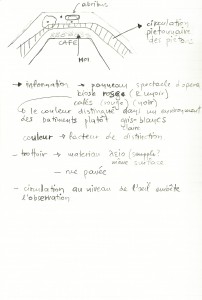 abribus
circulation
piétonnaire
des piétons
CAFE
MPI
→ information → panneau spectacle d'opéra
kiosk rosée (Renoir)
cafés (rouge) (noir)
la couleur distingue dans un environnement
des batiments plutôt gris-blancs
claire
couleur → facteur de distinction
- trottoir → materiau λείο (souple)
même surface
- rue pavée
- circulation au niveau de l'œil
l'observation